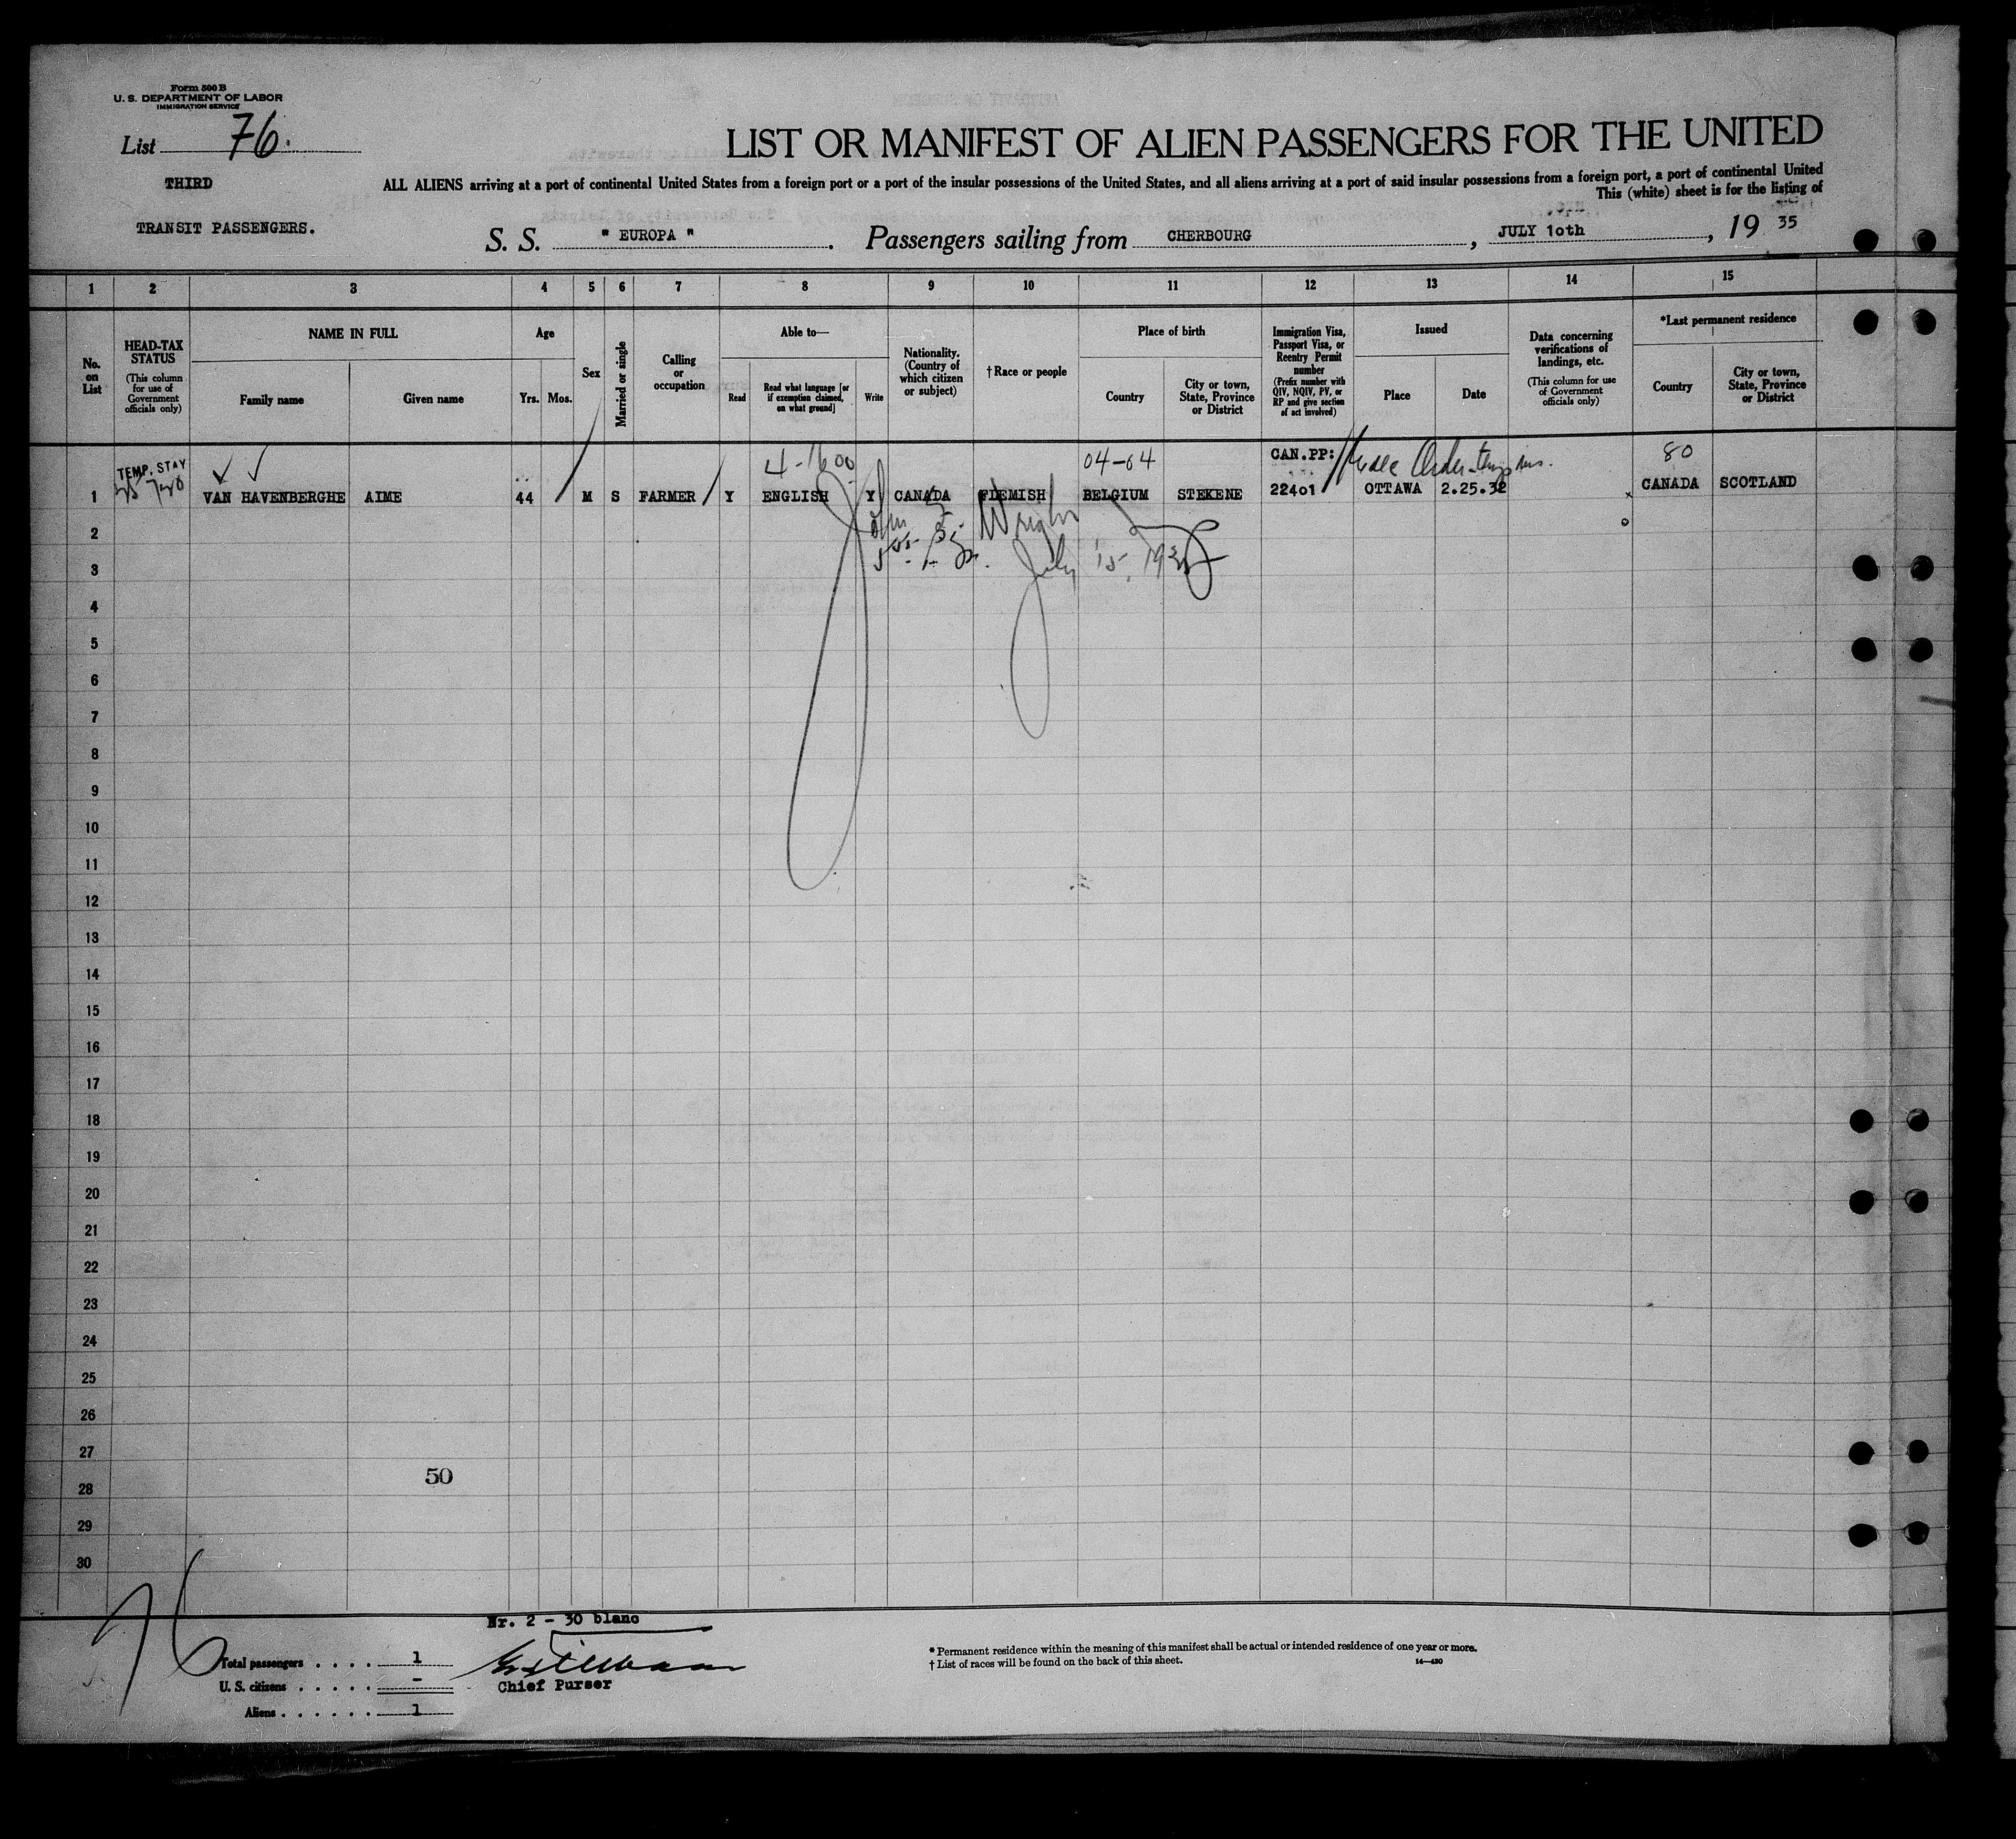 Form 500 B
U. S. DEPARTMENT OF LABOR
IMMIGRATION SERVICE
List 76.
LIST OR MANIFEST OF ALIEN PASSENGERS FOR THE UNITED
THIRD
ALL ALIENS arriving at a port of continental United States from a foreign port or a port of the insular possessions of the United States, and all aliens arriving at a port of said insular possessions from a foreign port, a port of continental United
This (white) sheet is for the listing of
TRANSIT PASSENGERS.
S. S. " EUROPA " . Passengers sailing from CHERBOURG , JULY 1oth , 19 35
1 2 3 4 5 6 7 8 9 10 11 12 13 14 15
No. on List
HEAD-TAX STATUS (This column for use of Government officials only)
NAME IN FULL
Family name
Given name
Age
Yrs. Mos.
Sex
Married or single
Calling or occupation
Able to—
Read
Read what language [or if exemption claimed, on what ground]
Write
Nationality. (Country of which citizen or subject)
† Race or people
Place of birth
Country
City or town, State, Province or District
Immigration Visa, Passport Visa, or Reentry Permit number (Prefix number with QIV, NQIV, PV, or RP and give section of act involved)
Issued
Place
Date
Data concerning verifications of landings, etc. (This column for use of Government officials only)
*Last permanent residence
Country
City or town, State, Province or District
TEMP. STAY 4-1600 04-64 CAN.PP: 80
1 VAN HAVENBERGHE AIME 44 M S FARMER Y ENGLISH Y CANADA FLEMISH BELGIUM STEKENE 22401 OTTAWA 2.25.32 CANADA SCOTLAND
2
3 July 15, 1935
4
5
6
7
8
9
10
11
12
13
14
15
16
17
18
19
20
21
22
23
24
25
26
27
50
28
29
30
76
Nr. 2 - 30 blanc
Total passengers . . . . 1
U. S. citizens . . . . . -
Chief Purser
Aliens . . . . . . 1
* Permanent residence within the meaning of this manifest shall be actual or intended residence of one year or more.
† List of races will be found on the back of this sheet.
14—430